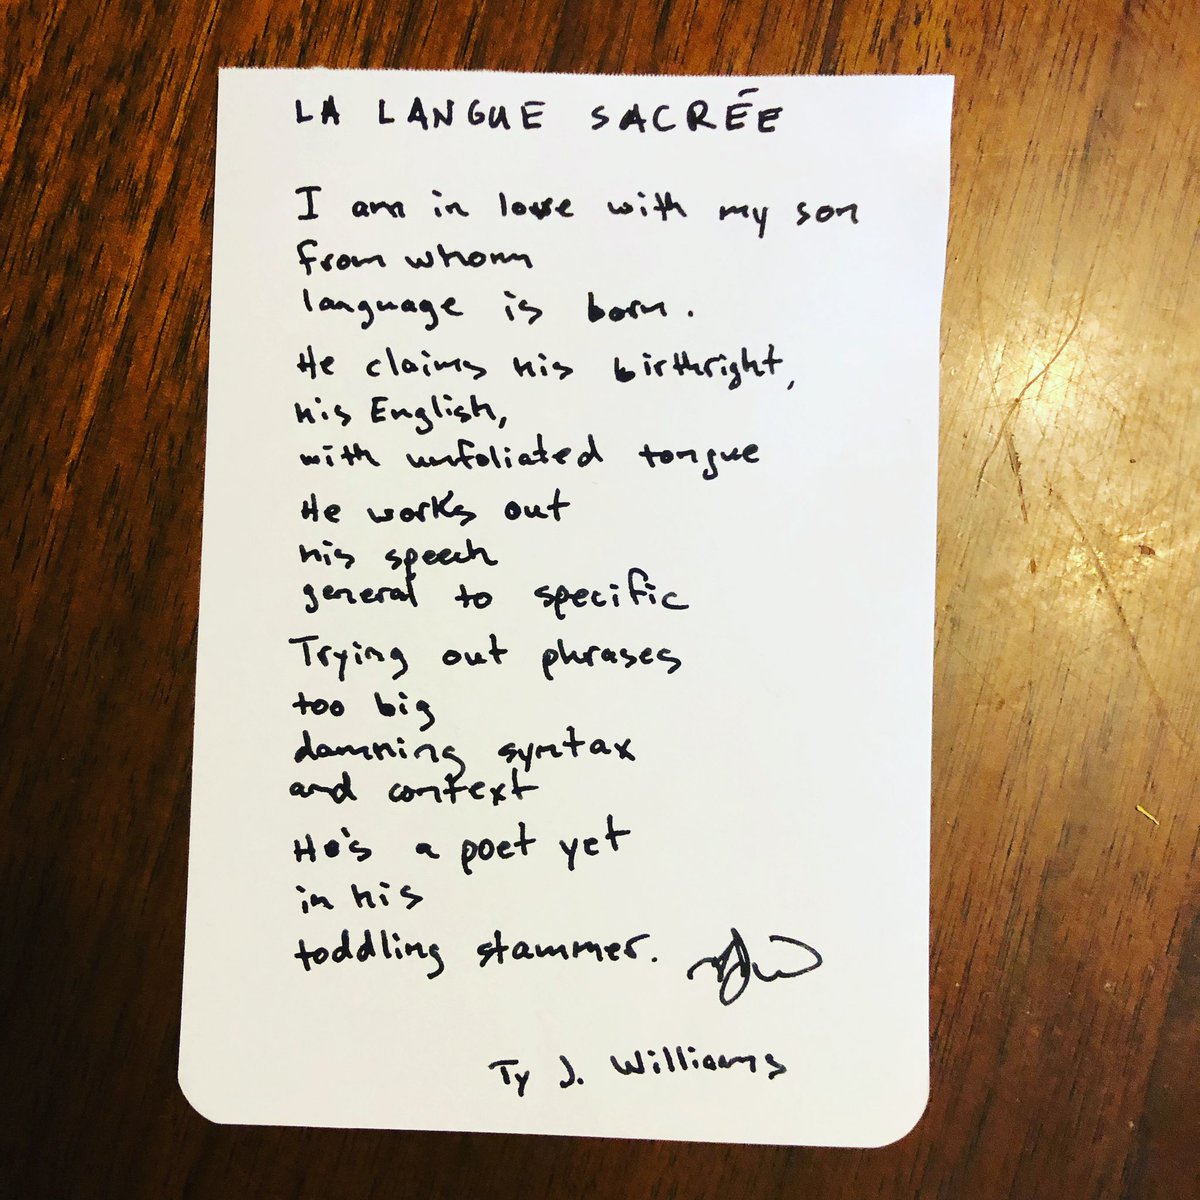 LA LANGUE SACRÉE
I am in love with my son
from whom
language is born.
He claims his birthright,
his English,
with unfoliated tongue
He works out
his speech
general to specific
Trying out phrases
too big
damning syntax
and context
He's a poet yet
in his
toddling stammer.
Ty J. Williams